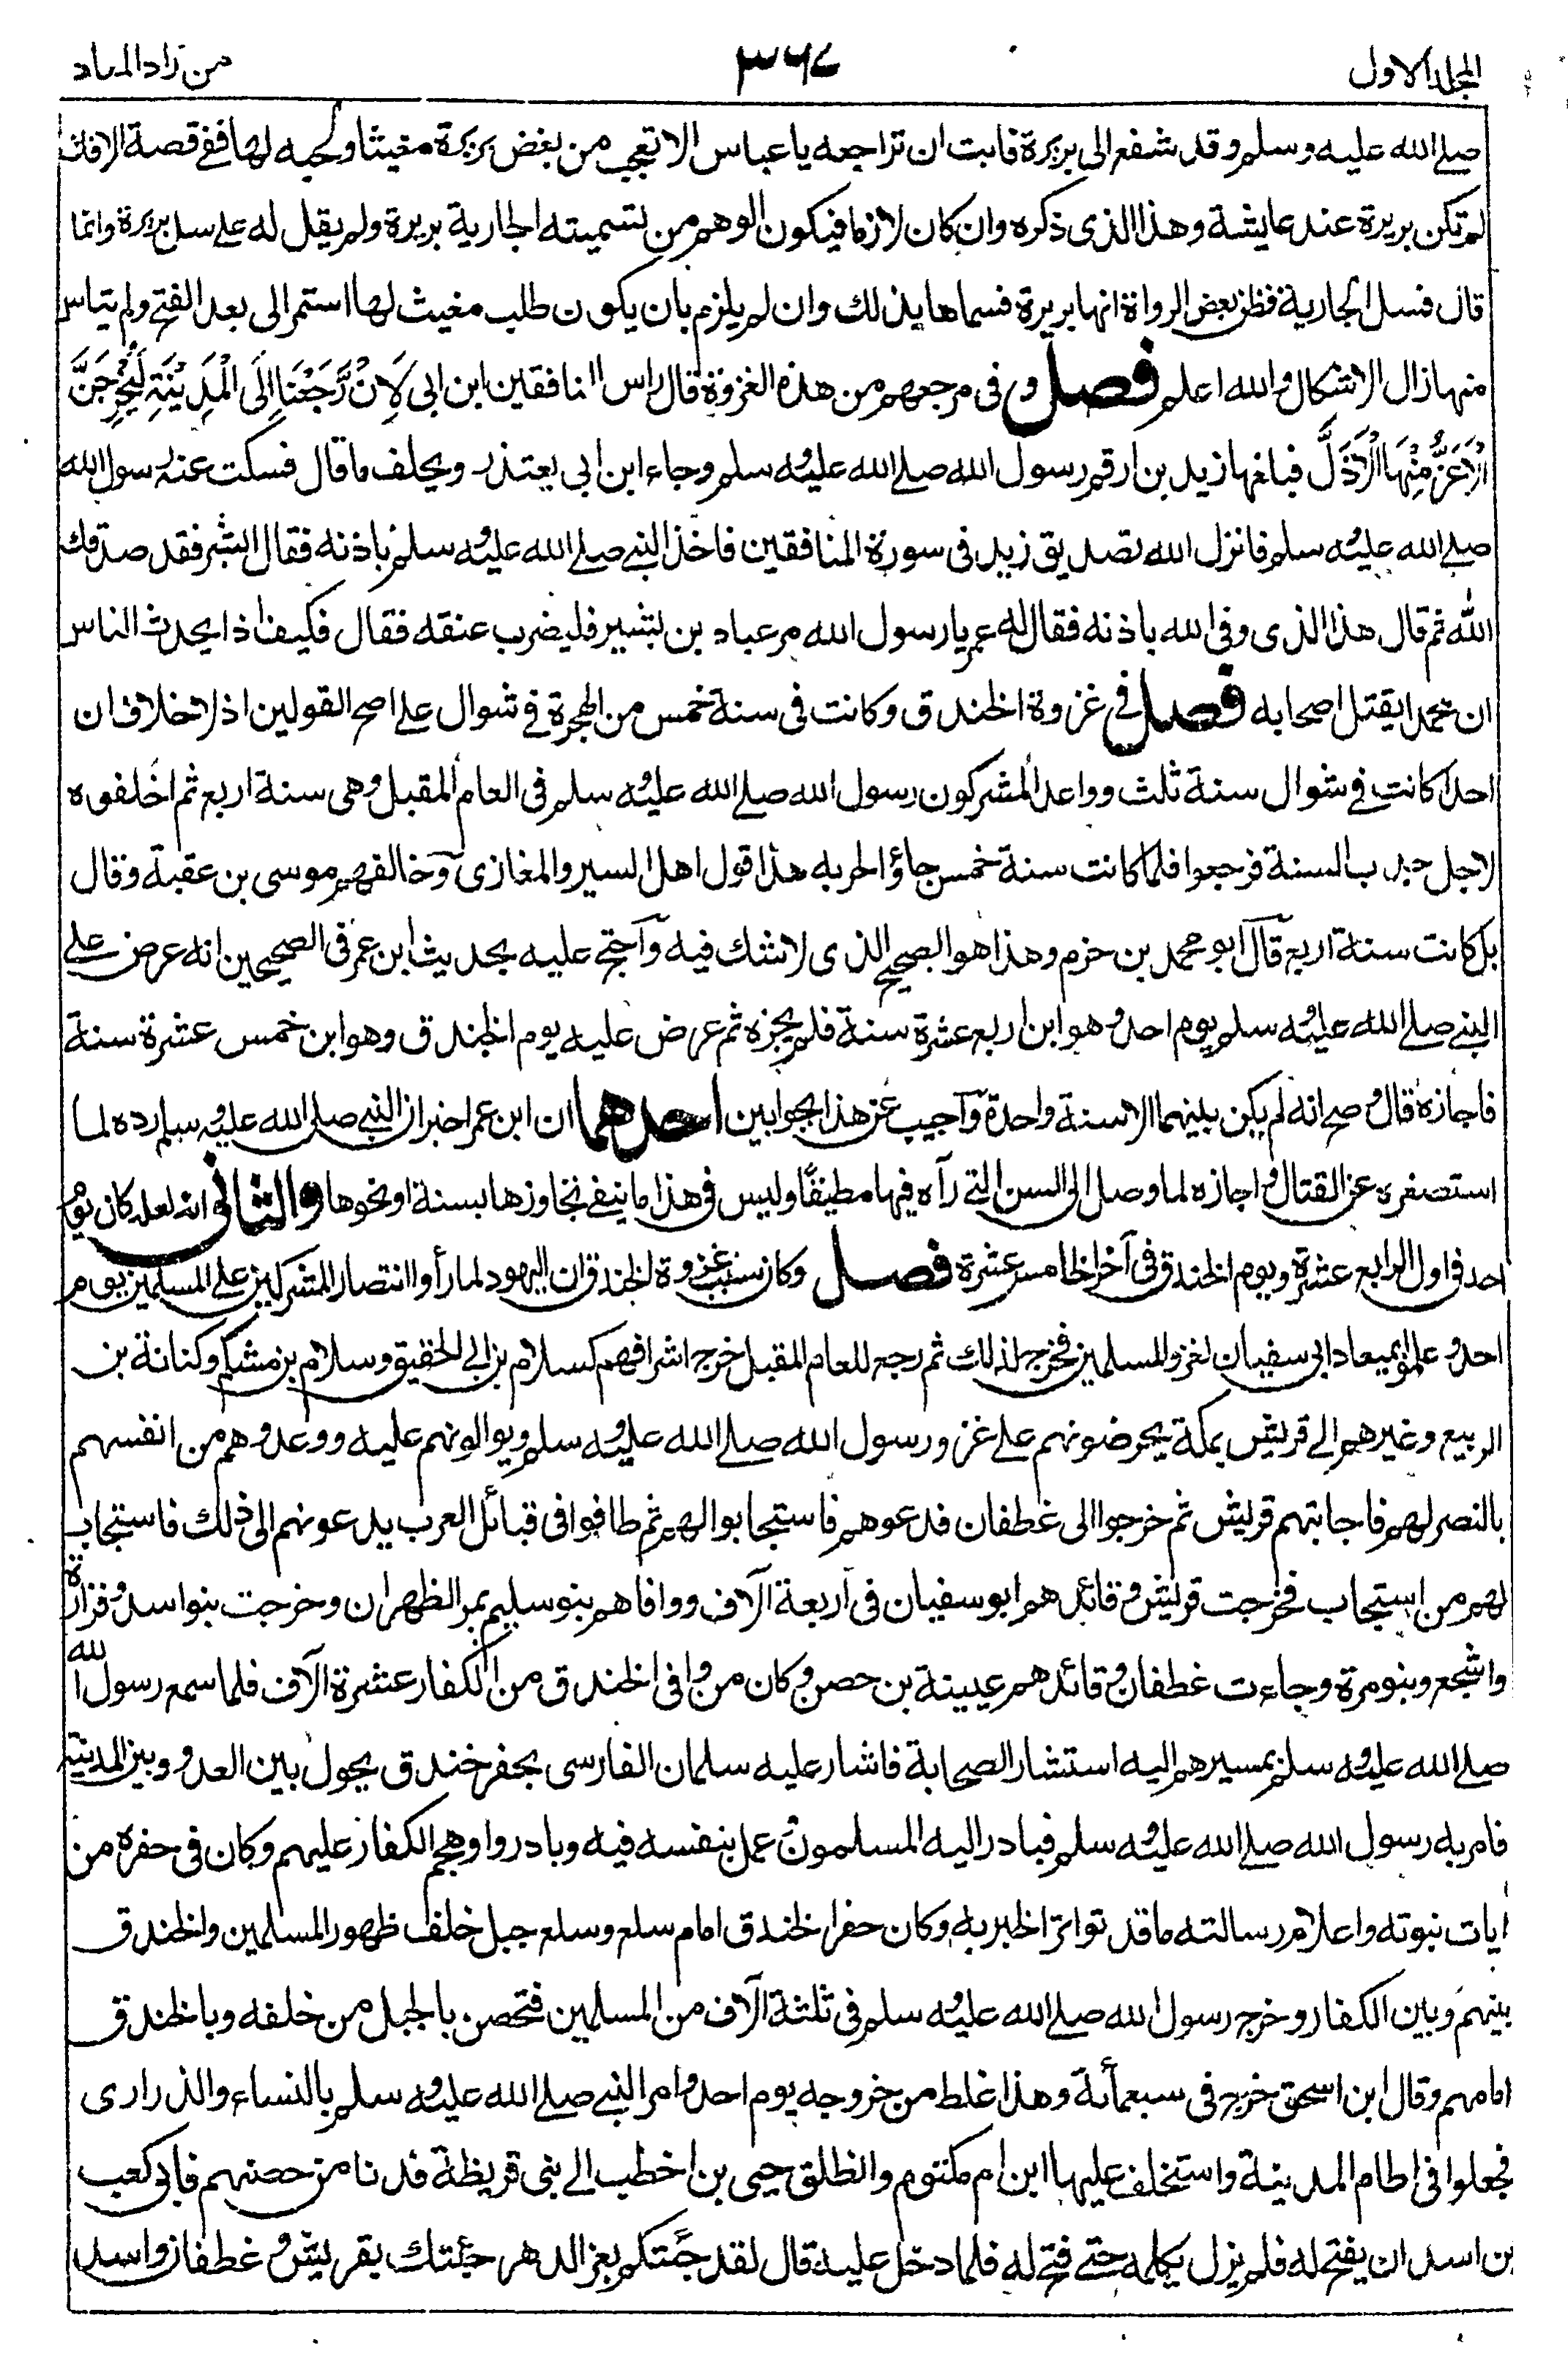 المجلد الاول ٣٦٧ من زاد المعاد
صلے الله عليه وسلم وقد شفع الى بريرة فابت ان تراجعه يا عباس الا تعجب من بغض بريرة مغيثا وحبه لها ففے قصة الافك
لم تكن بريرة عند عايشة وهذا الذى ذكره وان كان لازما فيكون الوهم من تسميته الجارية بريرة ولم يقل له علے سل بريرة وانما
قال فسل الجارية فظن بعض الرواة انها بريرة فسماها بذلك وان لم يلزم بان يكون طلب مغيث لها استمر الى بعد الفتح ولم يتاس
منها زال الاشكال والله اعلم فصل و فى مرجعهم من هذه الغزوة قال راس المنافقين ابن ابى لَاِنْ رَّجَعْنَا اِلَى الْمَدِيْنَةِ لَيُخْرِجَنَّ
الْاَعَزُّ مِنْهَا الْاَذَلَّ فبلغها زيد بن ارقم رسول الله صلے الله عليه وسلم وجاء ابن ابى يعتذر ويحلف ما قال فسكت عنه رسول الله
صلے الله عليه وسلم فانزل الله تصديق زيد فى سورة المنافقين فاخذ النبے صلے الله عليه وسلم باذنه فقال ابشر فقد صدقك
الله ثم قال هذا الذى وفى الله باذنه فقال له عمر يا رسول الله مر عباد بن بشير فليضرب عنقه فقال فكيف اذا يحدث الناس
ان محمدا يقتل اصحابه فصل فى غزوة الخندق وكانت فى سنة خمس من الهجرة فے شوال علے اصح القولين اذ لا خلاف ان
احدا كانت فے شوال سنة ثلث وواعد المشركون رسول الله صلے الله عليه وسلم فى العام المقبل وهى سنة اربع ثم اخلفوه
لاجل جدب السنة فرجعوا فلما كانت سنة خمس جاؤا لحربه هذا قول اهل السير والمغازى وخالفهم موسى بن عقبة وقال
بل كانت سنة اربع قال ابو محمد بن حزم وهذا هو الصحيح الذى لا شك فيه واحتج عليه بحديث ابن عمر فى الصحيحين انه عرض علے
النبے صلے الله عليه وسلم يوم احد وهو ابن اربع عشرة سنة فلم يجزه ثم عرض عليه يوم الخندق وهو ابن خمس عشرة سنة
فاجازه قال وصح انه لم يكن بينهما الا سنة واحدة واجيب عن هذا بجوابين احدهما ان ابن عمر اخبر ان النبے صلے الله عليه وسلم رده لما
استصغره عن القتال واجازه لما وصل الى السن التے رآه فيها مطيقا وليس فى هذا ما ينفے تجاوزها بسنة او نحوها والثانى انه لعله كان يوم
احد فى اول الرابع عشرة ويوم الخندق فى آخر الخامس عشرة فصل وكان سبب غزوة الخندق ان اليهود لما رأوا انتصار المشركين علے المسلمين يوم
احد وعلموا بميعاد ابى سفيان لغزو المسلمين فخرج لذلك ثم رجع للعام المقبل خرج اشرافهم كسلام بن ابى الحقيق وسلام بن مشكم وكنانة بن
الربيع وغيرهم الے قريش بمكة يحرضونهم علے غزو رسول الله صلے الله عليه وسلم ويوالونهم عليه ووعدوهم من انفسهم
بالنصر لهم فاجابتهم قريش ثم خرجوا الى غطفان فدعوهم فاستجابوا لهم ثم طافوا فى قبائل العرب يدعونهم الى ذلك فاستجاب
لهم من استجاب فخرجت قريش وقائدهم ابو سفيان فى اربعة آلاف ووافاهم بنو سليم بمر الظهران وخرجت بنو اسد وفزارة
واشجع وبنو مرة وجاءت غطفان وقائدهم عيينة بن حصن وكان من وافى الخندق من الكفار عشرة آلاف فلما سمع رسول الله
صلے الله عليه وسلم بمسيرهم اليه استشار الصحابة فاشار عليه سلمان الفارسى بحفر خندق يحول بين العدو وبين المدينة
فامر به رسول الله صلے الله عليه وسلم فبادر اليه المسلمون وعمل بنفسه فيه وبادروا وهجم الكفار عليهم وكان فى حفره من
ايات نبوته واعلام رسالته ما قد تواتر الخبر به وكان حفر الخندق امام سلع وسلع جبل خلف ظهور المسلمين والخندق
بينهم وبين الكفار وخرج رسول الله صلے الله عليه وسلم فى ثلثة آلاف من المسلمين فتحصن بالجبل من خلفه وبالخندق
امامهم وقال ابن اسحق خرج فى سبعمائة وهذا غلط من خروجه يوم احد وامر النبے صلے الله عليه وسلم بالنساء والذرارى
فجعلوا فى اطام المدينة واستخلف عليها ابن ام مكتوم وانطلق حيى بن اخطب الے بنى قريظة فدنا من حصنهم فابى كعب
بن اسد ان يفتح له فلم يزل يكلمه حتے فتح له فلما دخل عليه قال لقد جئتكم بعز الدهر جئتك بقريش وغطفان واسد